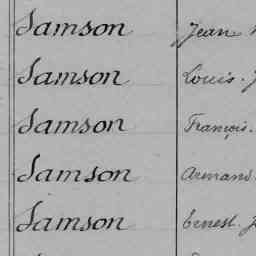 Samson Jean
Samson Louis. J
Samson François.
Samson Armand
Samson Ernest. J